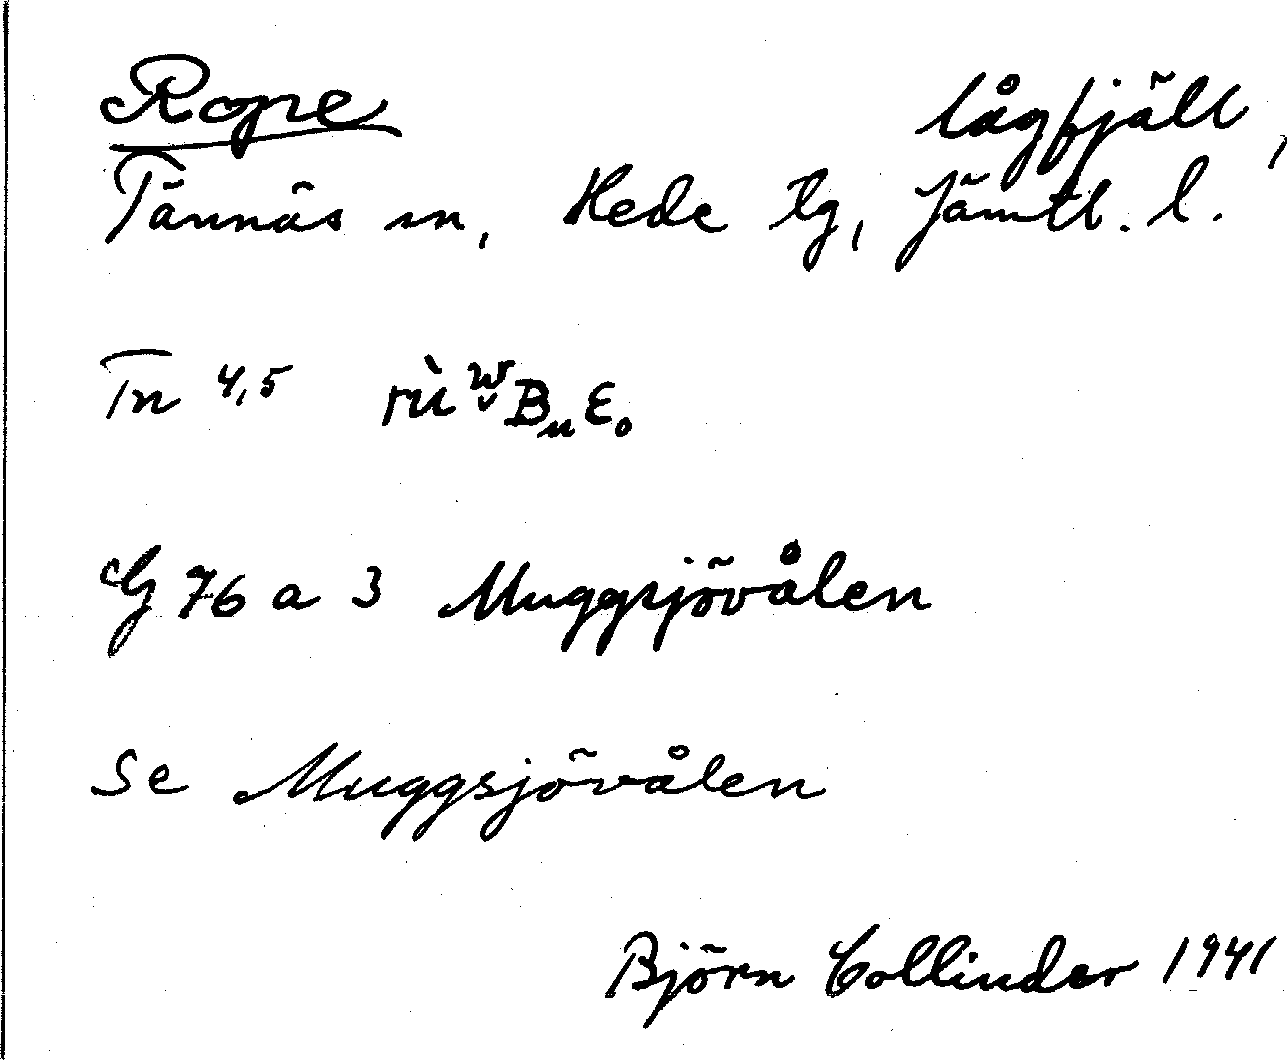 Rope lågfjäll,
Tännäs sn, Hede tg, Jämtl. l.
Tn 4,5
G 76 a 3 Muggsjövålen
Se Muggsjövålen
Björn Collinder 1941